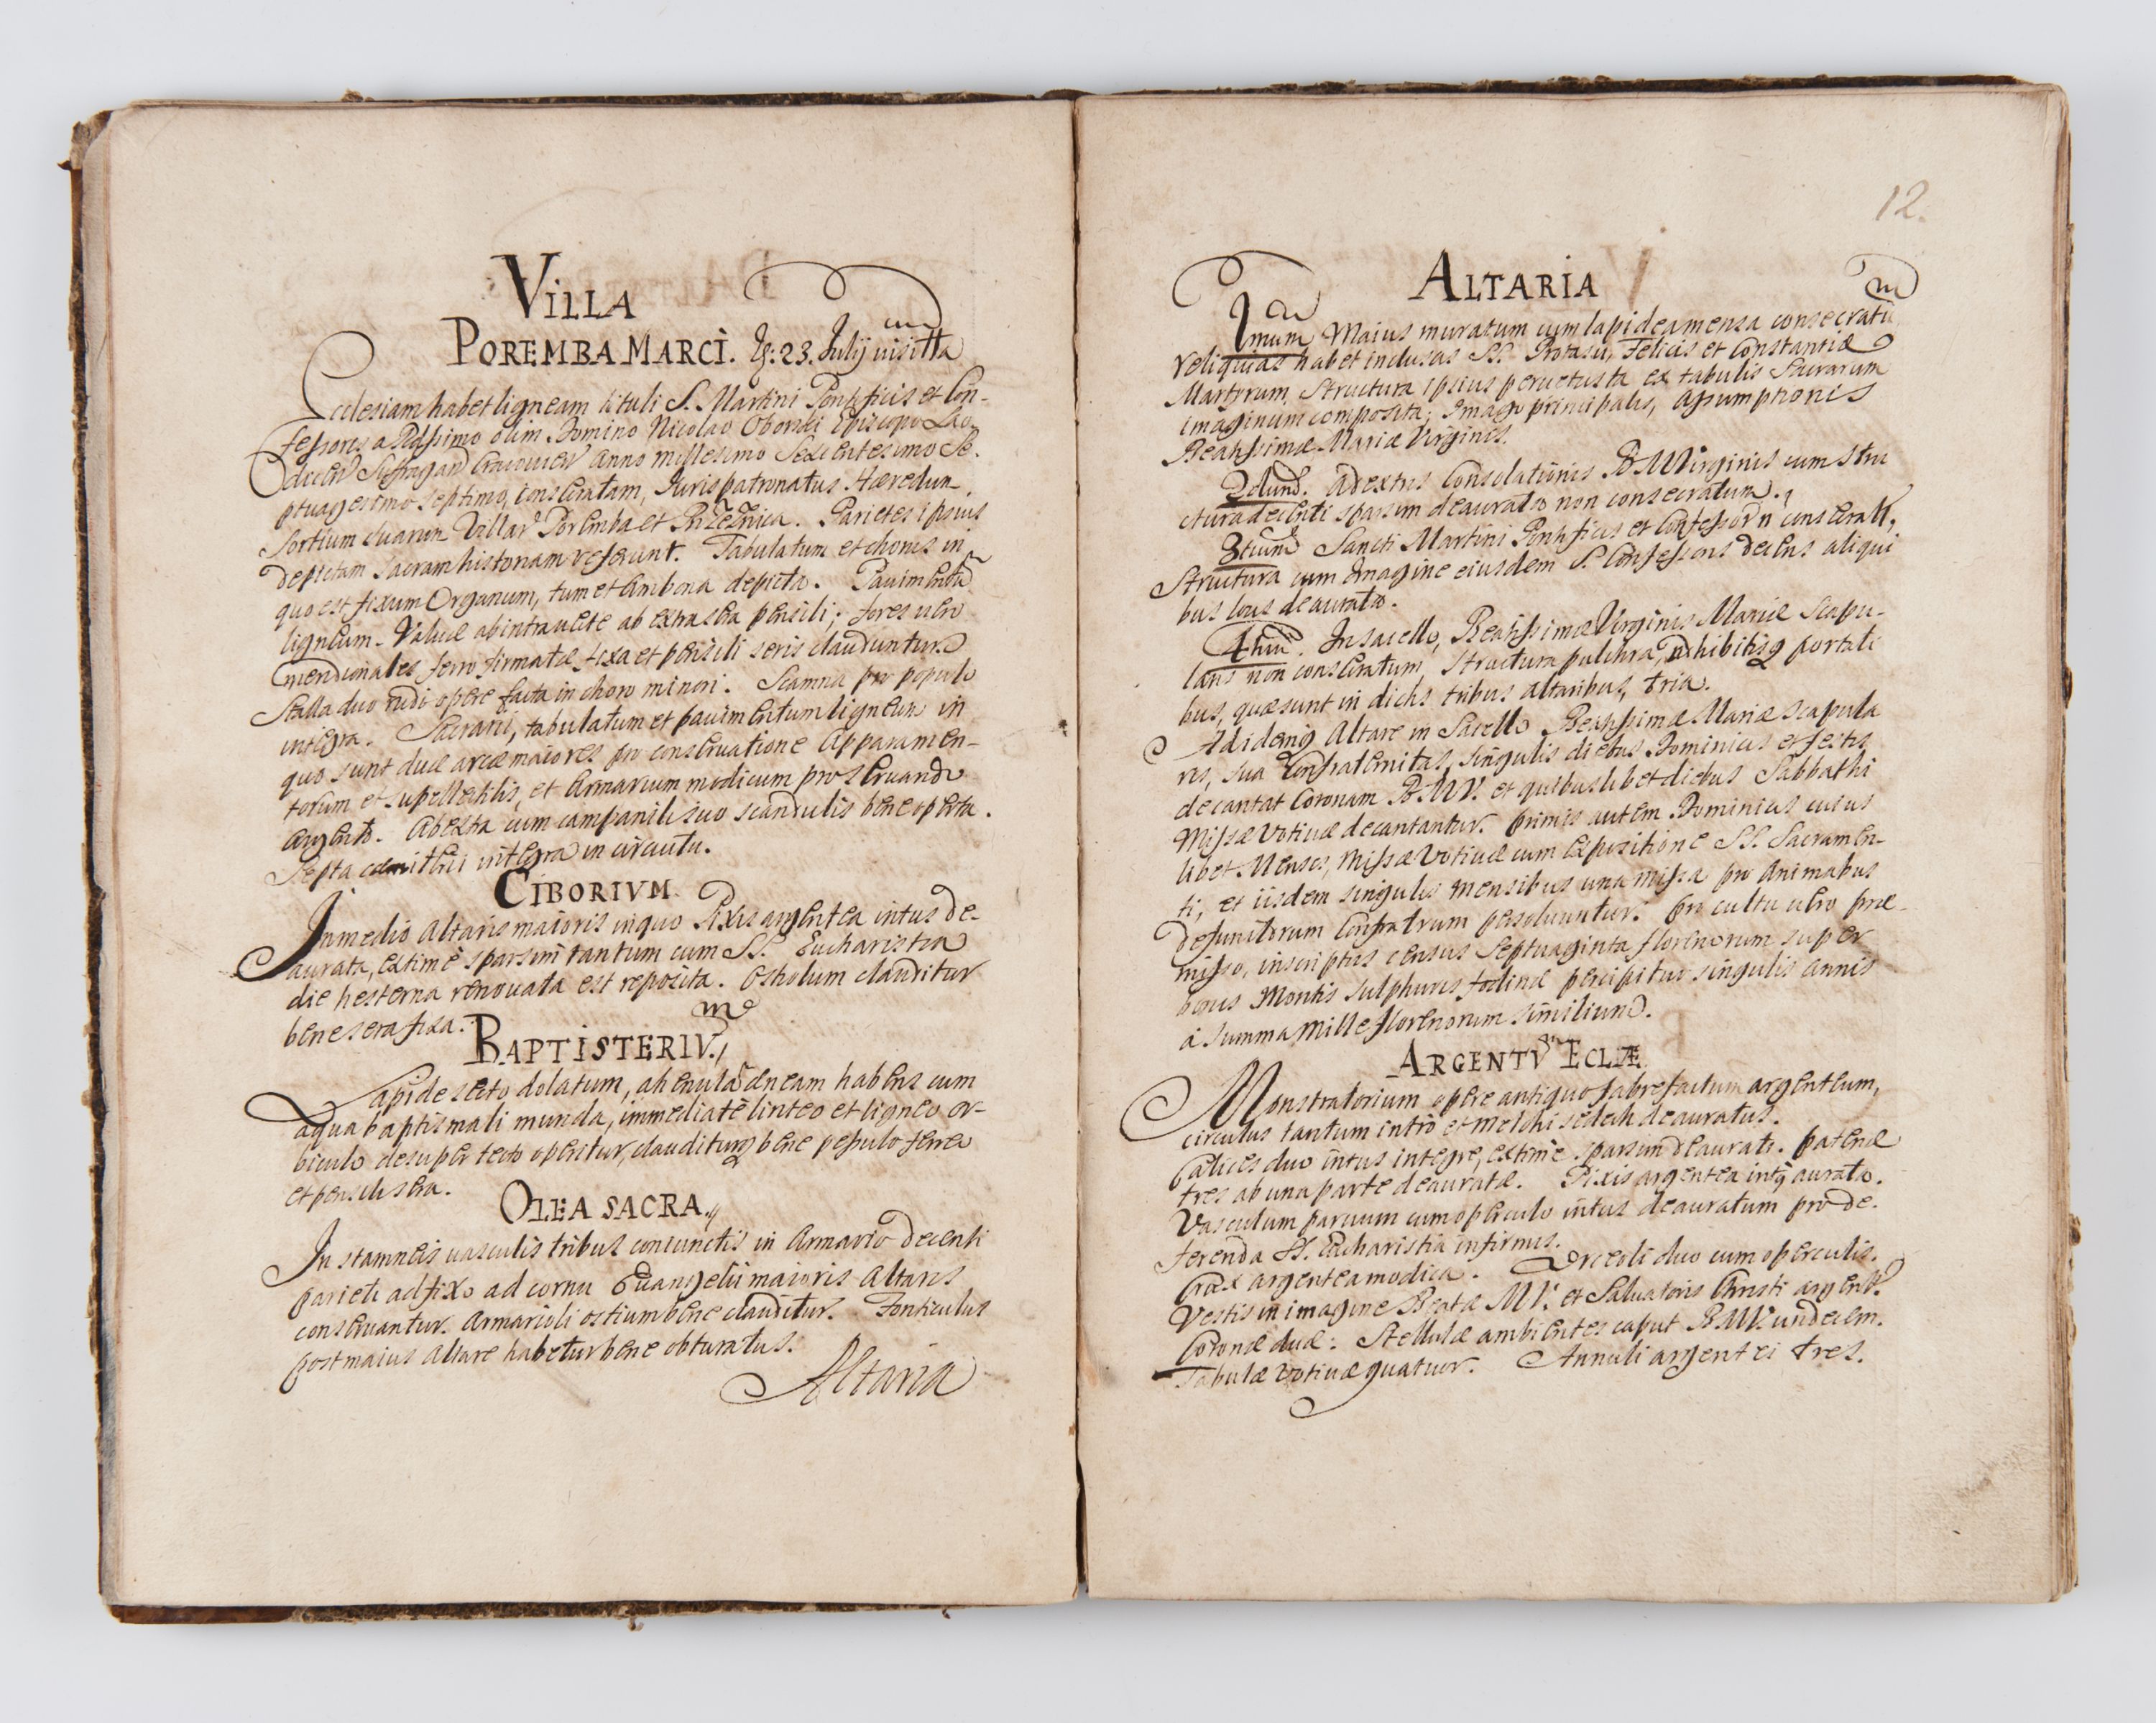 VILLA
POREMBA MARCI. 23. Julij visitta
Ecclesiam habet ligneam tituli S. Martini Pontificis et Con-
fessoris a Rdssimo olim Domino Nicolao Oborski Episcopo Lao-
dicen Suffragan Cracovien Anno Millesimo Sexcentesimo Se-
ptuagesimo septimo, consecratam, Jurispatronatus Hæredum
sortium duarum Villar Poremba et Przeznica. Parietes ipsius
depictam sacram historiam referunt. Tabulatum et chorus in
quo est fixum Organum, tum et Ambona depicta. Pavimentũ
ligneum. Valvæ ab intra vecte ab extra sera pensili; fores vero
meridionales ferro firmatæ fixa et pensili seris clauduntur.
Stalla duo rudi opere facta in choro minori. Scamna pro populo
integra. Sacrarii, tabulatum et pavimentum ligneum in
quo sunt duæ arcæ maiores pro conservatione Apparamen-
torum et supellectilis, et Armarium modicum pro servando
Argento. Ab extra cum campanili suo scandulis bene operta.
Septa cæmiterii integra in circuitu.
CIBORIVM
In medio Altaris maioris in quo Pixis argentea intus de-
aurata, extimè sparsim tantum cum SS. Eucharistia
die hesterna renovata est reposita. Ostiolum clauditur
bene sera fixa.
BAPTISTERIV.m
Lapide secto dolatum, ahenulã æneam habens cum
aqua baptismali munda, immediatè linteo et ligneo or-
biculo desuper tecto operitur, clauditurq bene pessulo ferreo
et pensili sera.
OLEA SACRA.
In stamneis vasculis tribus coniunctis in Armario decenti
parieti adfixo ad cornu Evangelii maioris Altaris
conservantur. Armarioli ostium bene clauditur. Fonticulus
post maius Altare habetur bene obturatus.
Altaria
12.
ALTARIA
Imum Maius muratum cum lapidea mensa consecratũ
reliquias habet inclusas SS. Protasii, Felicis et Constantiæ
Martyrum, Structura ipsius pervetusta ex tabulis Sacrarum
imaginum composita; Imago principalis, Assumptionis
Beatissimæ Mariæ Virginis.
2dum. A dextris Consolationis B M Virginis cum stru
ctura decenti sparsim deaurata non consecratum.
3tium Sancti Martini Pontificis et Confessor n consecratũ,
Structura cum Imagine eiusdem S. Confessoris decens aliqui
bus locis deaurata.
4tum. In sacello, Beatissimæ Virginis Mariæ Scapu-
laris non consecratum, structura pulchra, adhibitisq portati
bus, quæ sunt in dictis tribus altaribus, tria.
Ad idemq Altare in Sacello Beatissimæ Mariæ Scapula
ris, sua Confraternitas, singulis diebus Dominicis et festis
decantat Coronam B. M. V. et quibuslibet diebus Sabbathi
Missæ Votivæ decantantur. primis autem Dominicis cuius
libet Menses, Missæ Votivæ cum Expositione SS. Sacramen-
ti, et iisdem singulis mensibus una missa pro Animabus
defunctorum Confratrum persolvuntur. Pro cultu vero præ-
misso, inscriptus census septuaginta florenorum super
bonis Montis sulphuris fodinæ percipitur singulis annis
à summa Mille florenorum similium.
ARGENTV ECLÆ
Monstratorium opere antiquo fabrefactum argenteum,
circulus tantum intrò et melchisedech deauratus.
Calices duo intus integre, extimè sparsim deaurati. Patenæ
tres ab una parte deauratæ. Pixis argentea intq aurata.
Vasculum parvum cum operculo intus deauratum pro de-
ferenda SS. Eucharistia infirmis.
Crux argentea modica. Orceoli duo cum operculis.
Vestis in imagine Beatæ MV. et Salvatoris Christi argent.
Coronæ duæ: Stellulæ ambientes caput B. M. V. undecim.
Tabulæ votivæ quatuor. Annuli argentei tres.